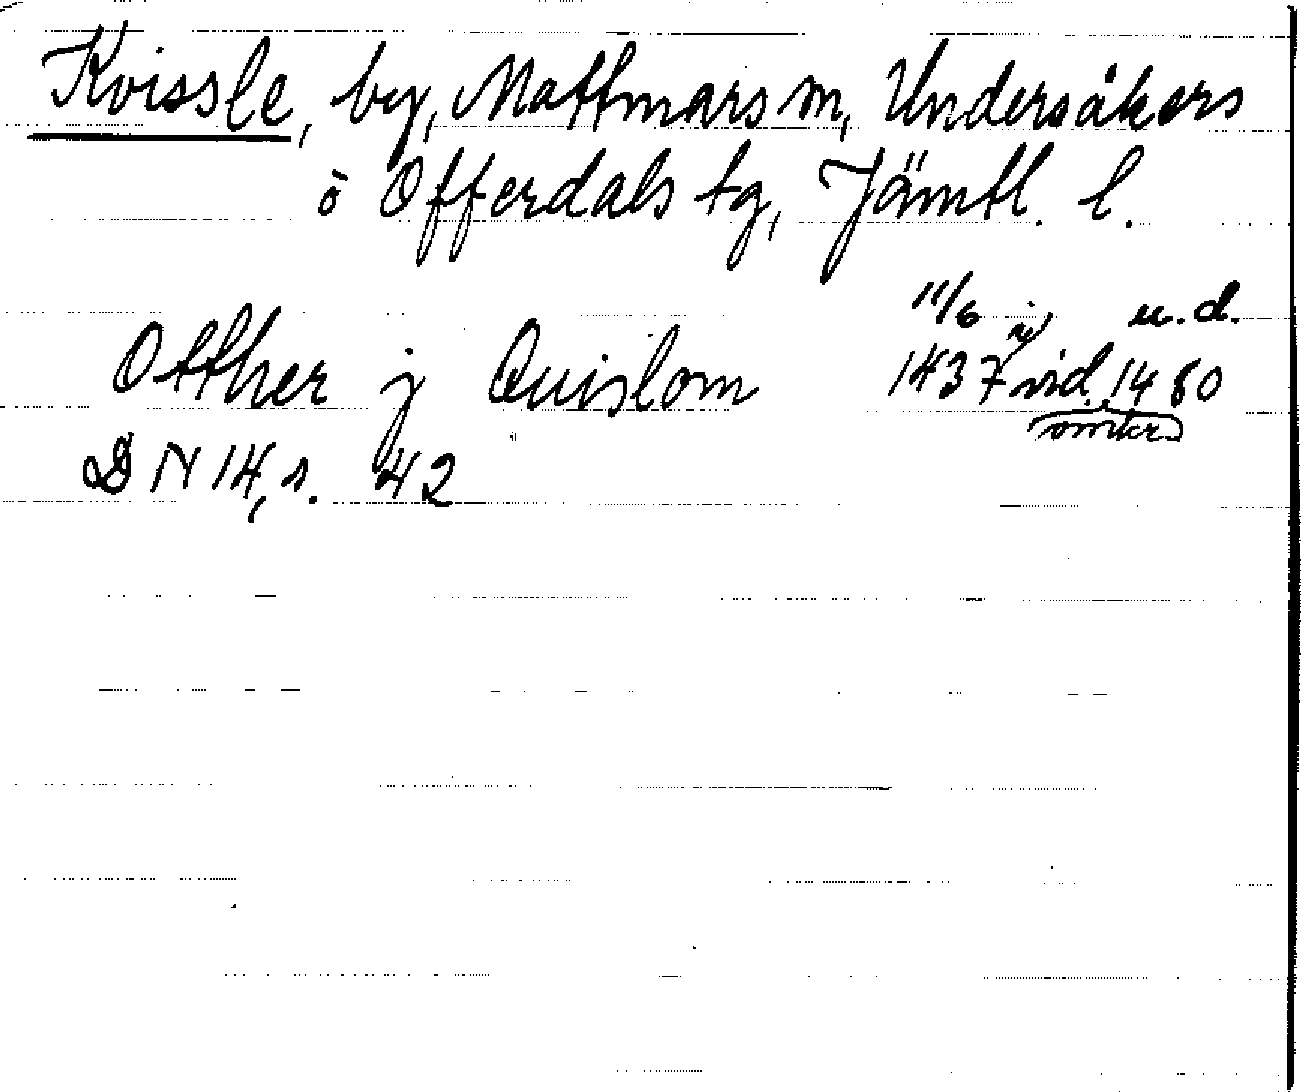 Kvissle, by, Mattmars sn, Undersåkers
o Offerdals tg, Jämtl. l.
11/6 i u.d.
Otther j Quislom 1437 vid. 1480
omkr
DN 14, s. 42